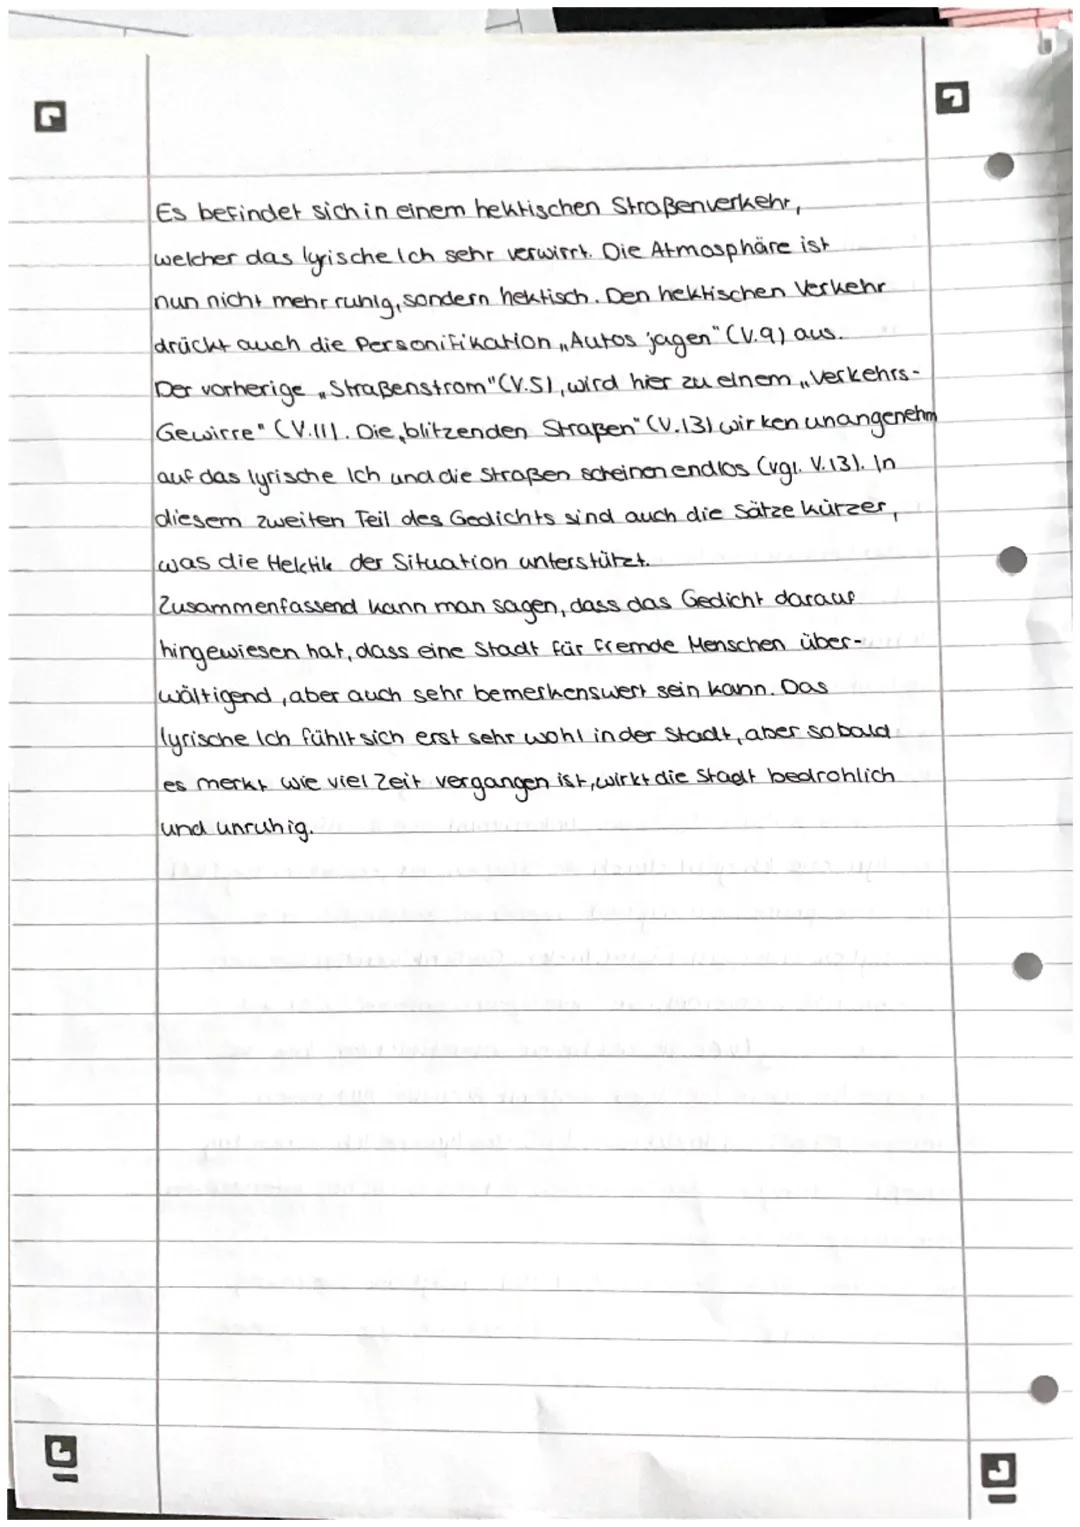 Es befindet sich in einem hektischen Straßenverkehr,
welcher das lyrische Ich sehr verwirrt. Die Atmosphäre ist
nun nicht mehr ruhig, sondern hektisch. Den hektischen Verkehr
drückt auch die Personifikation „Autos jagen" (V.9) aus.
Der vorherige „Straßenstrom" (V.5), wird hier zu einem „Verkehrs-
Gewirre" (V.11). Die „blitzenden Straßen" (V.13) wirken unangenehm
auf das lyrische Ich und die Straßen scheinen endlos (vgl. V.13). In
diesem zweiten Teil des Gedichts sind auch die Sätze kürzer,
was die Hektik der Situation unterstützt.
Zusammenfassend kann man sagen, dass das Gedicht darauf
hingewiesen hat, dass eine Stadt für fremde Menschen über-
wältigend, aber auch sehr bemerkenswert sein kann. Das
lyrische Ich fühlt sich erst sehr wohl in der Stadt, aber sobald
es merkt wie viel Zeit vergangen ist, wirkt die Stadt bedrohlich
und unruhig.